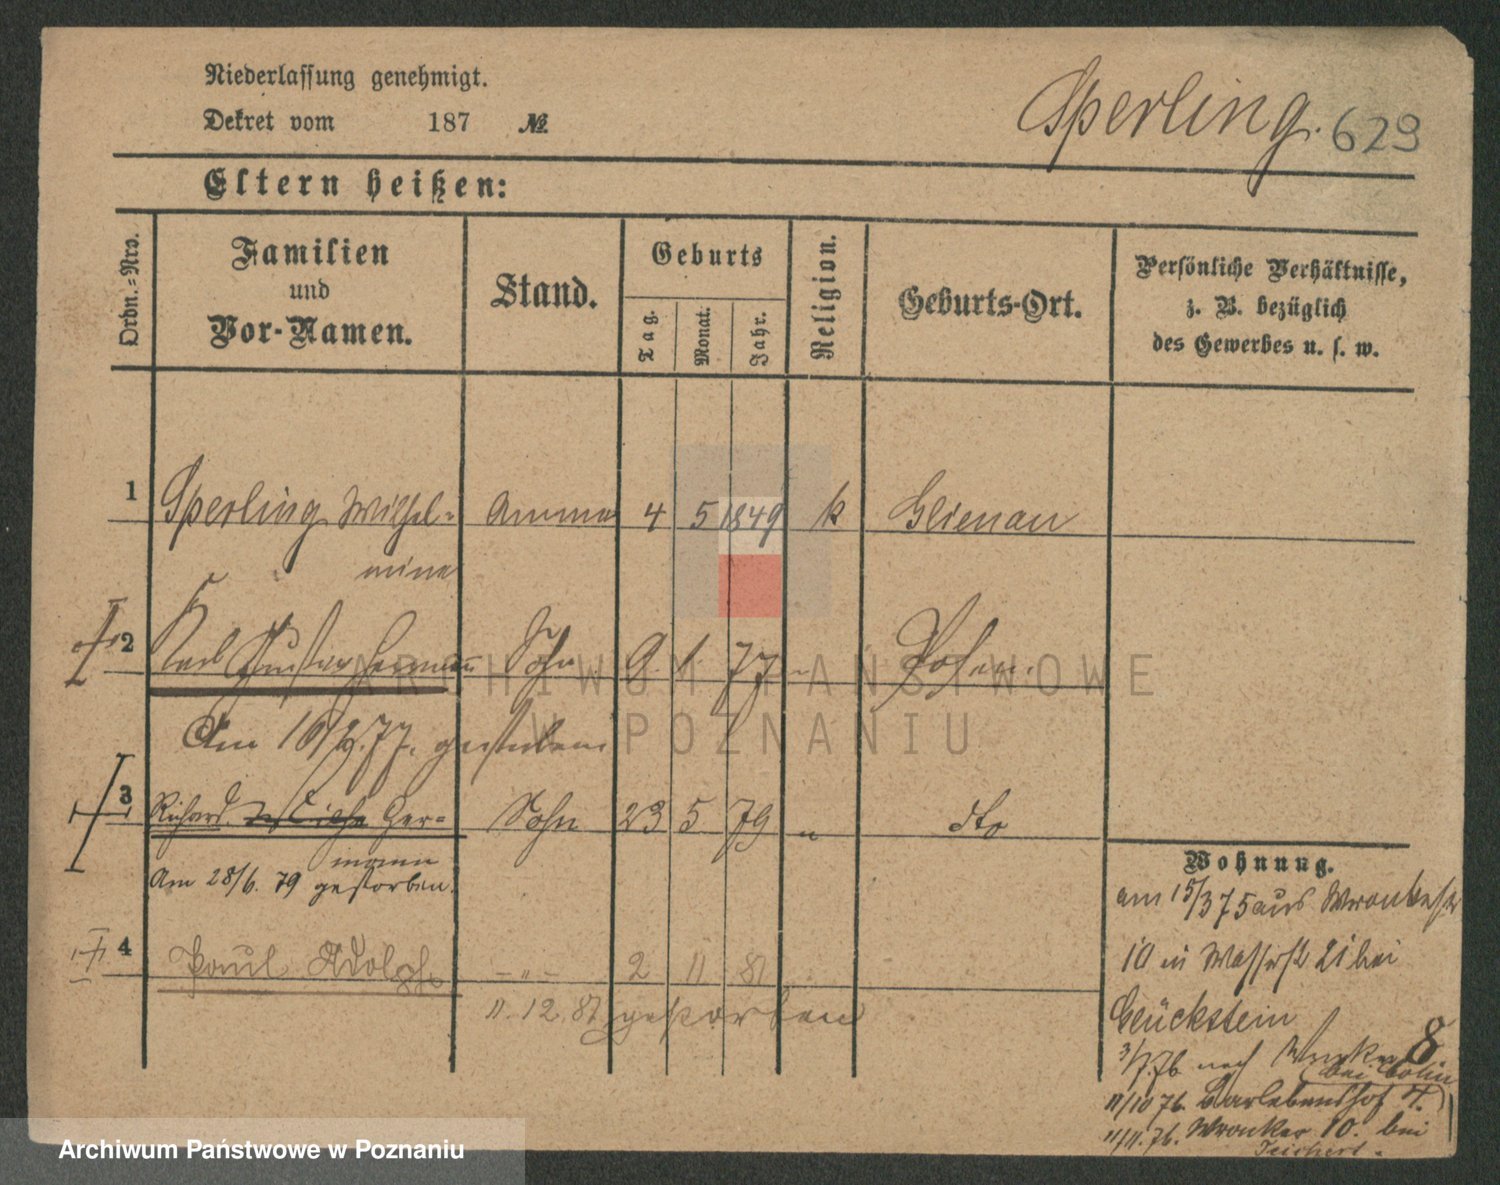 Niederlassung genehmigt.
Dekret vom 187 №
Sperling. 629
Eltern heißen:
Ordn.-Nro.
Familien
und
Vor-Namen.
Stand.
Geburts
Tag.
Monat.
Jahr.
Religion.
Geburts-Ort.
Persönliche Verhältnisse,
z. B. bezüglich
des Gewerbes u. s. w.
1 Sperling Wilhel- Amme 4 5 1849 k Glienau
mine
2 Karl Gustav Hermann Sohn 9. 1. 77 " Posen.
Am 16/9. 77. gestorben
3 Richard Her- Sohn 23 5 79 " dto
mann
Am 28/6. 79 gestorben.
4 Paul Adolph - " - 2 11 81
11. 12. 81 gestorben
Wohnung.
am 15/3 75 aus Wronkerstr
10 in Wasserstr 21 bei
Glückstein
3/7. 76 nach Wronker 8
bei Cohn
11/10 76. Barlebenshof 4.
11/11. 76. Wronker 10. bei
Teichert.
ARCHIWUM PAŃSTWOWE
W POZNANIU
Archiwum Państwowe w Poznaniu